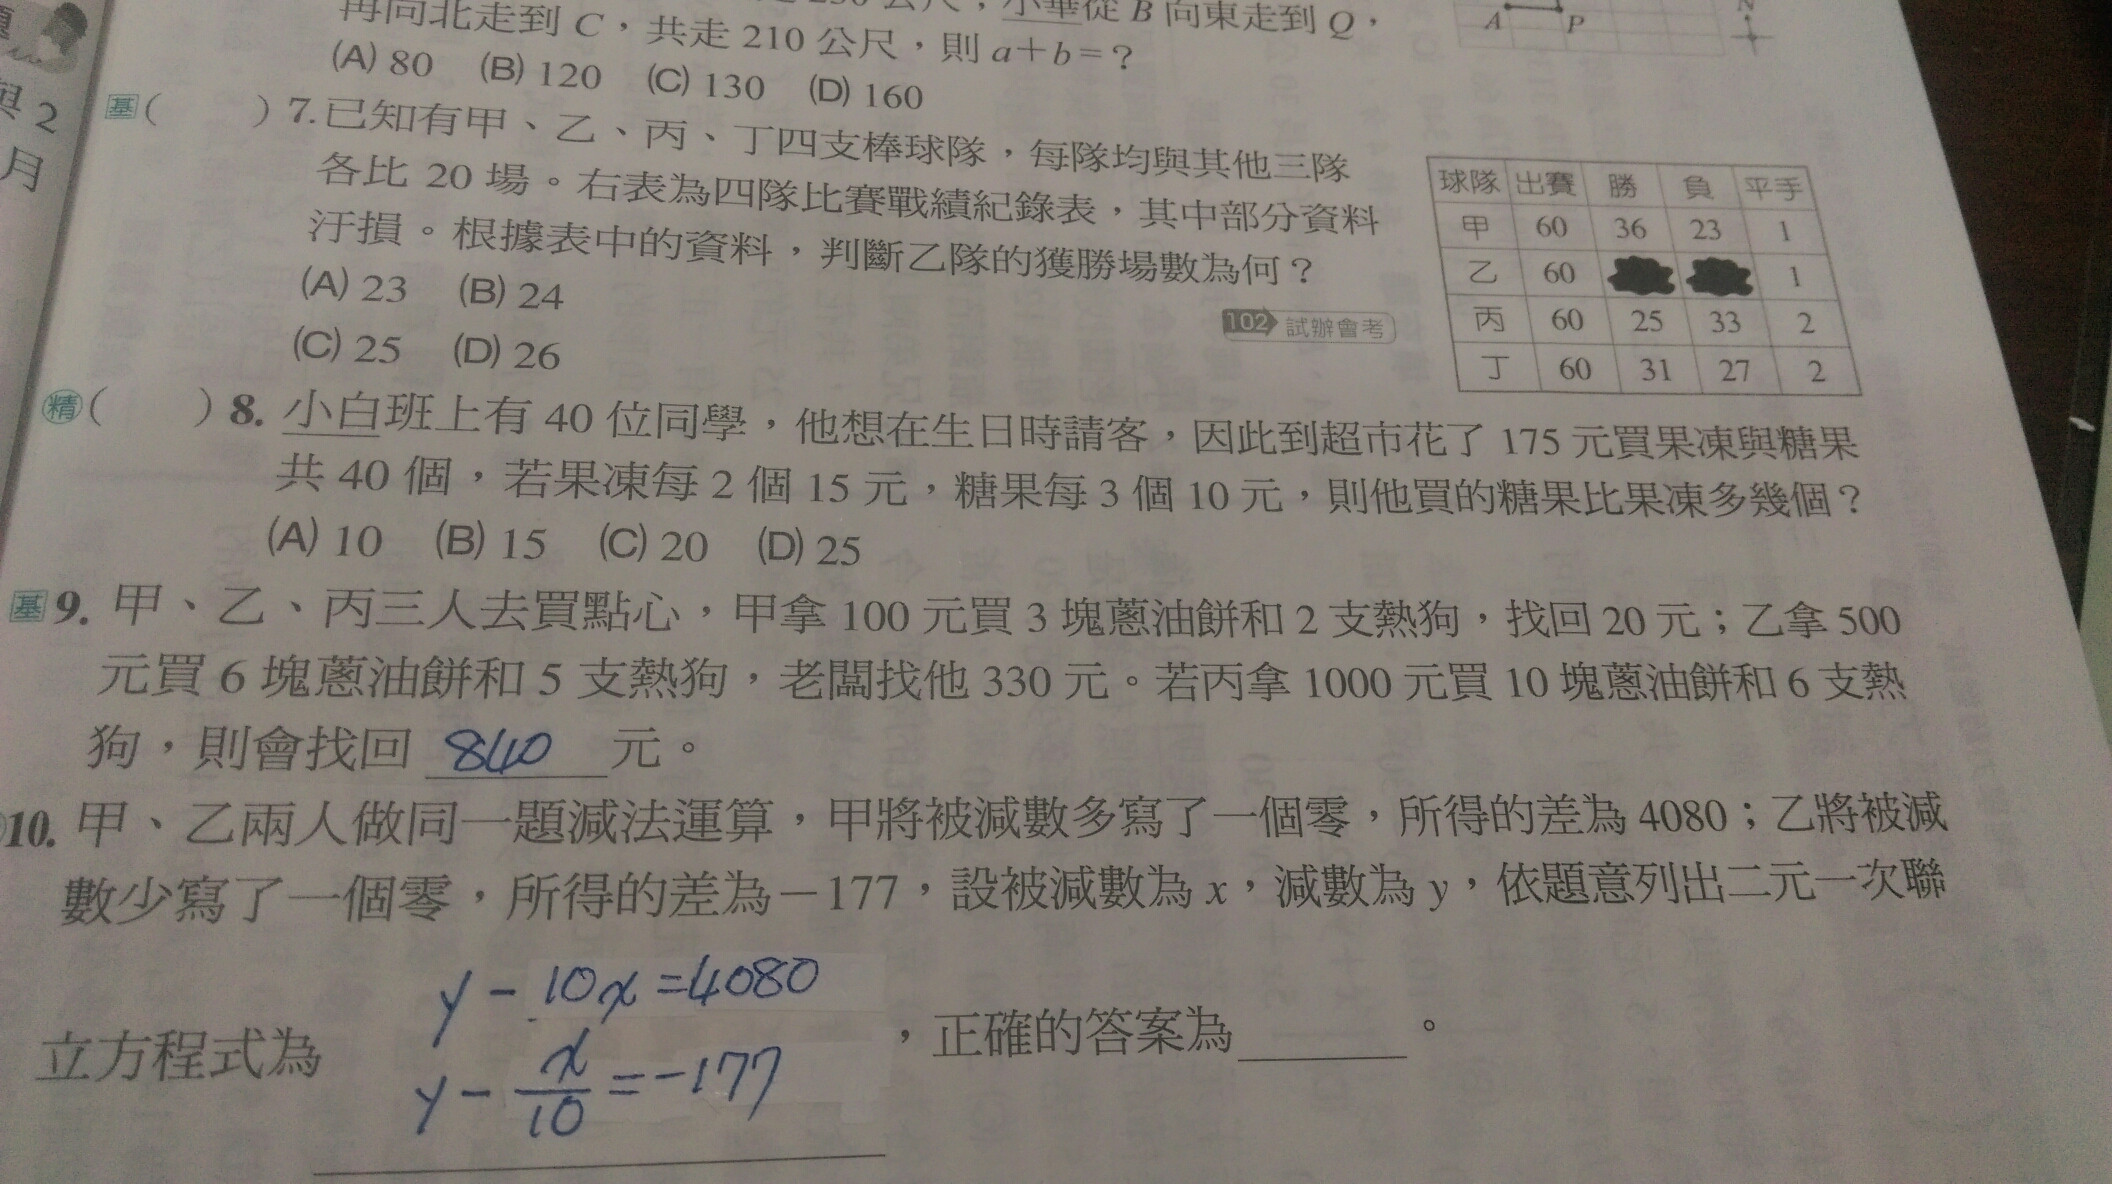 再向北走到 C，共走 210 公尺，則 a＋b＝？
(A) 80 (B) 120 (C) 130 (D) 160
小華從 B 向東走到 Q，
A P
N
與 2
月
基( ) 7. 已知有甲、乙、丙、丁四支棒球隊，每隊均與其他三隊
各比 20 場。右表為四隊比賽戰績紀錄表，其中部分資料
汙損。根據表中的資料，判斷乙隊的獲勝場數為何？
(A) 23 (B) 24
(C) 25 (D) 26
102 試辦會考
球隊 出賽 勝 負 平手
甲 60 36 23 1
乙 60 1
丙 60 25 33 2
丁 60 31 27 2
精( ) 8. 小白班上有 40 位同學，他想在生日時請客，因此到超市花了 175 元買果凍與糖果
共 40 個，若果凍每 2 個 15 元，糖果每 3 個 10 元，則他買的糖果比果凍多幾個？
(A) 10 (B) 15 (C) 20 (D) 25
基 9. 甲、乙、丙三人去買點心，甲拿 100 元買 3 塊蔥油餅和 2 支熱狗，找回 20 元；乙拿 500
元買 6 塊蔥油餅和 5 支熱狗，老闆找他 330 元。若丙拿 1000 元買 10 塊蔥油餅和 6 支熱
狗，則會找回 840 元。
10. 甲、乙兩人做同一題減法運算，甲將被減數多寫了一個零，所得的差為 4080；乙將被減
數少寫了一個零，所得的差為－177，設被減數為 x，減數為 y，依題意列出二元一次聯
y－10x＝4080
立方程式為 ，正確的答案為 。
y－x/10＝－177